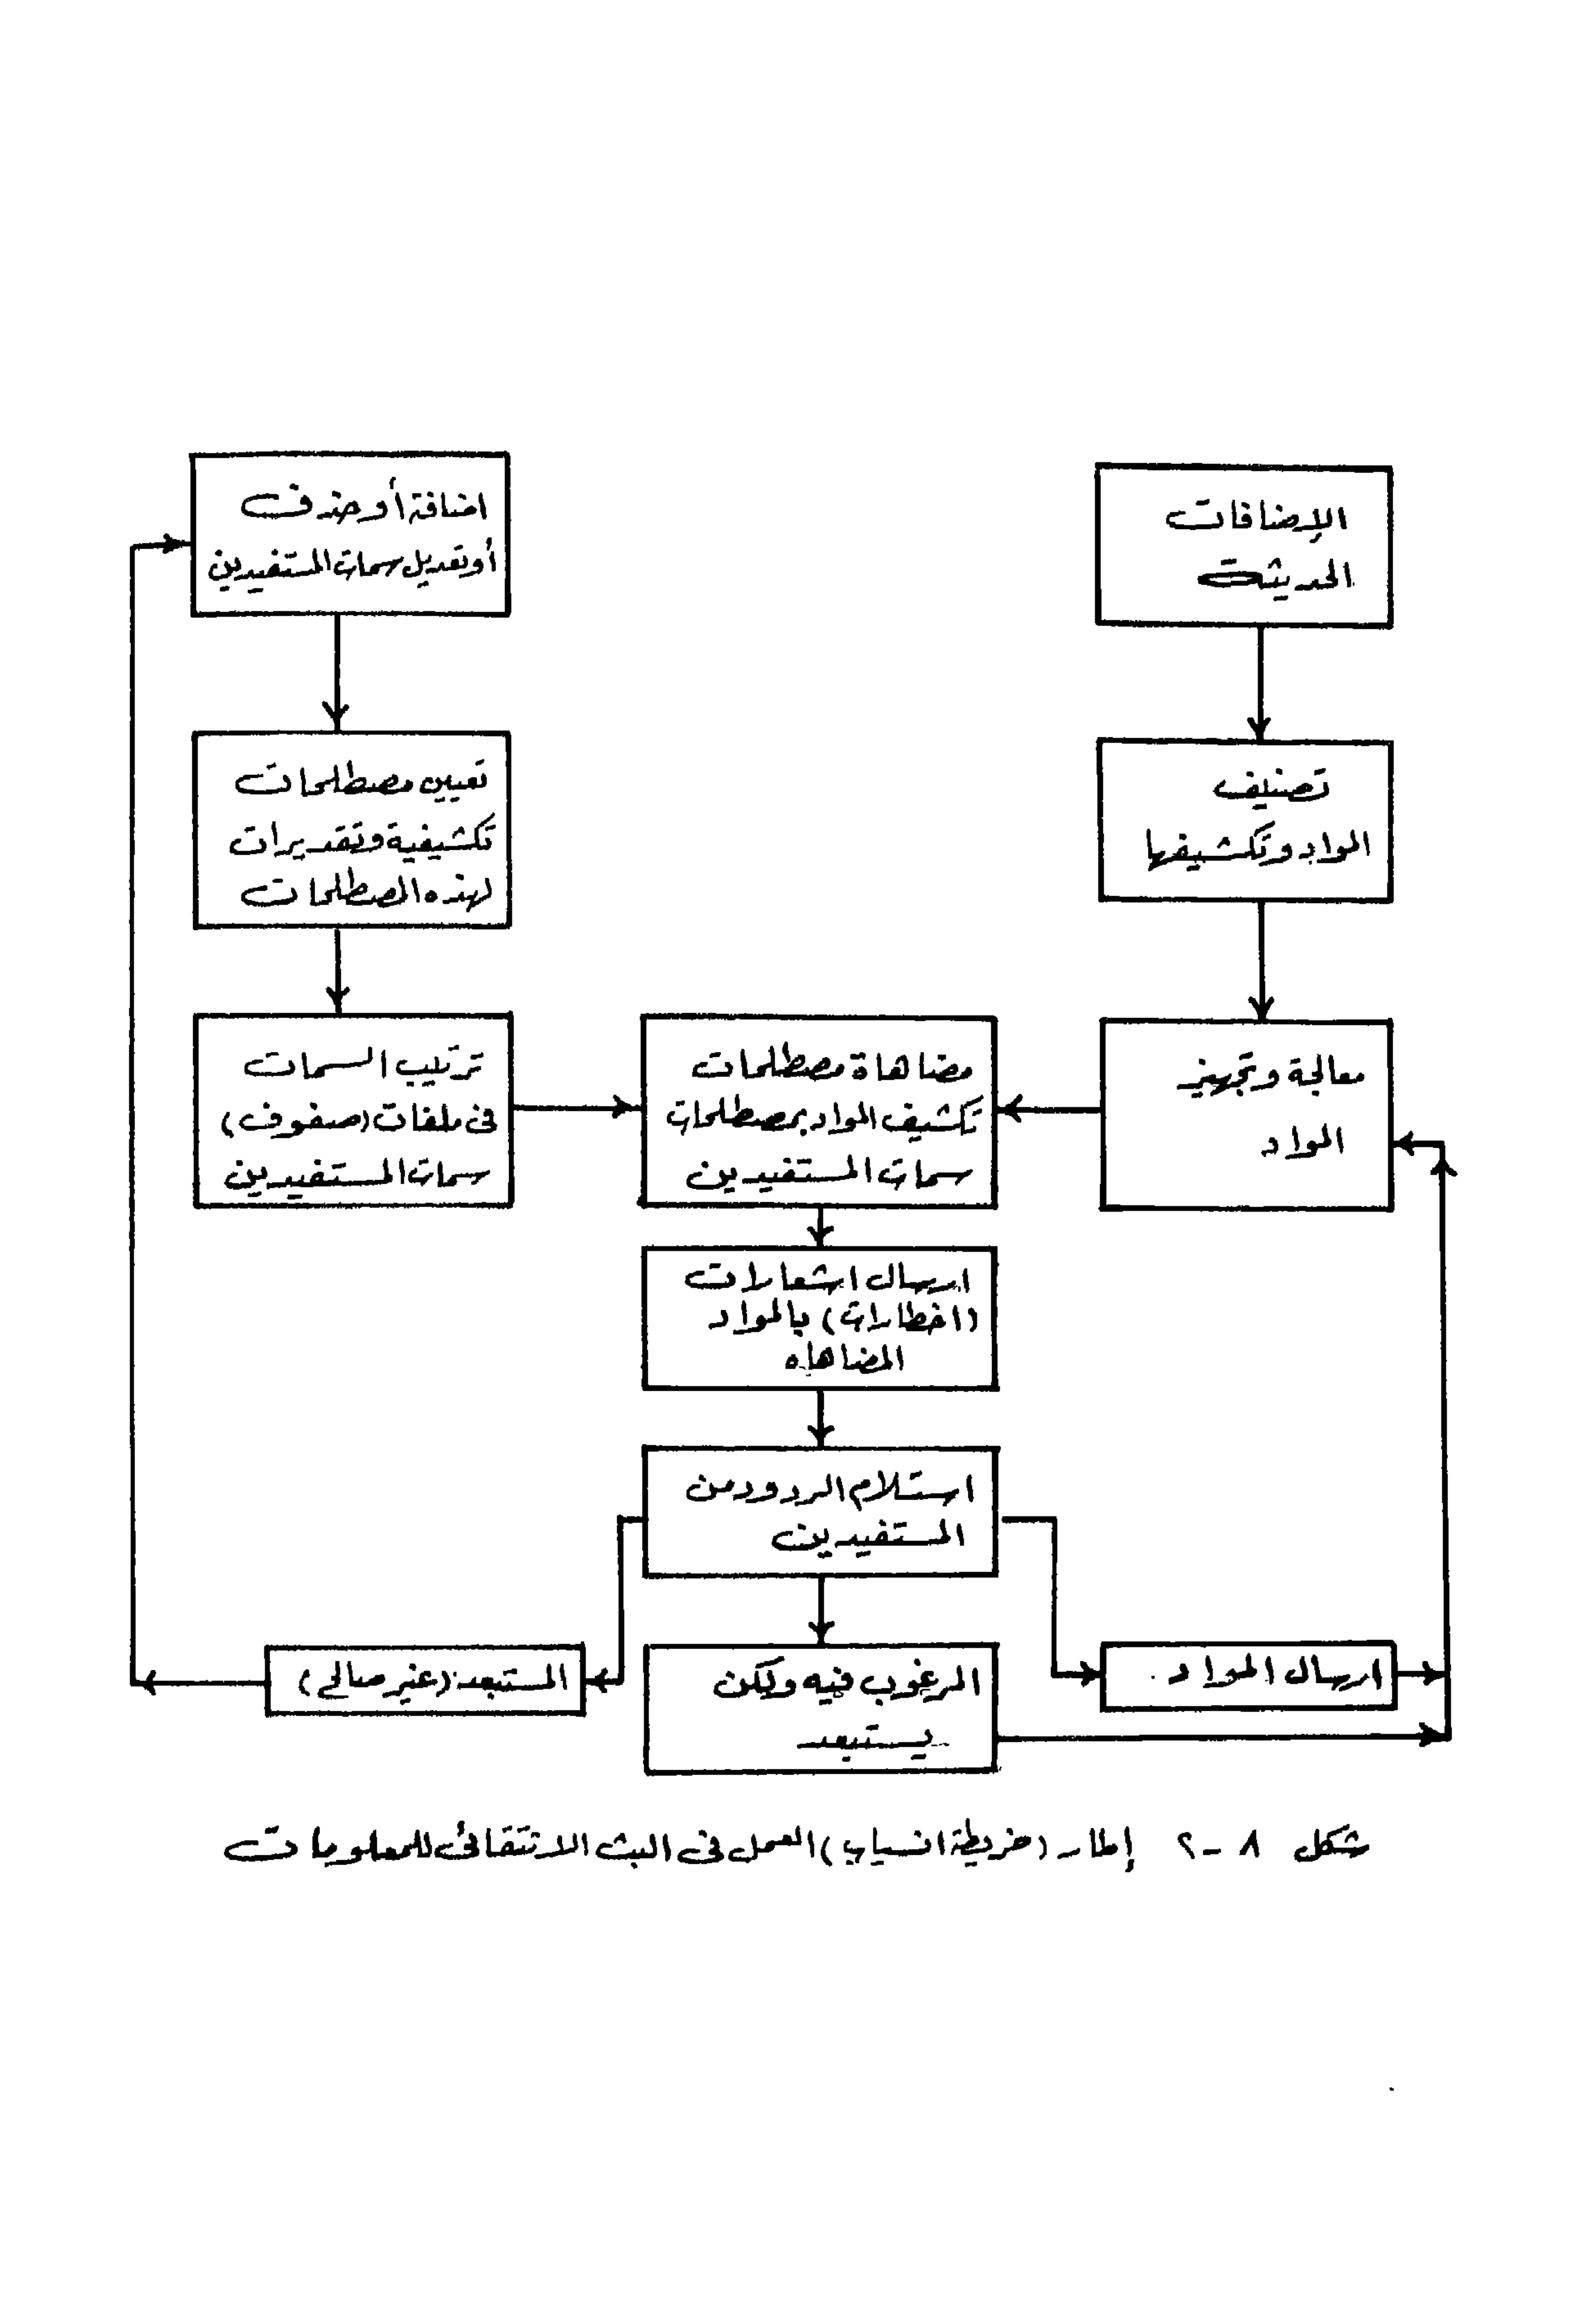 الإضافات
الحديثة
تصنيف
المواد وتكشيفها
معالجة وتجهيز
المواد
اضافة أو حذف
أو تعديل سمات المستفيدين
تعيين مصطلحات
تكشيفية وتقديرات
لهذه المصطلحات
ترتيب السمات
فى ملفات (صفوف)
سمات المستفيدين
مضاهاة مصطلحات
تكشيف المواد بمصطلحات
سمات المستفيدين
ارسال اشعارات
(اخطارات) بالمواد
المضاهاه
استلام الردود من
المستفيدين
ارسال المواد
المرغوب فيه ولكن
يستبعد
المستبعد (غير صالح)
شكل ٨ - ٢ إطار (خريطة انسياب) العمل فى البث الانتقائى للمعلومات